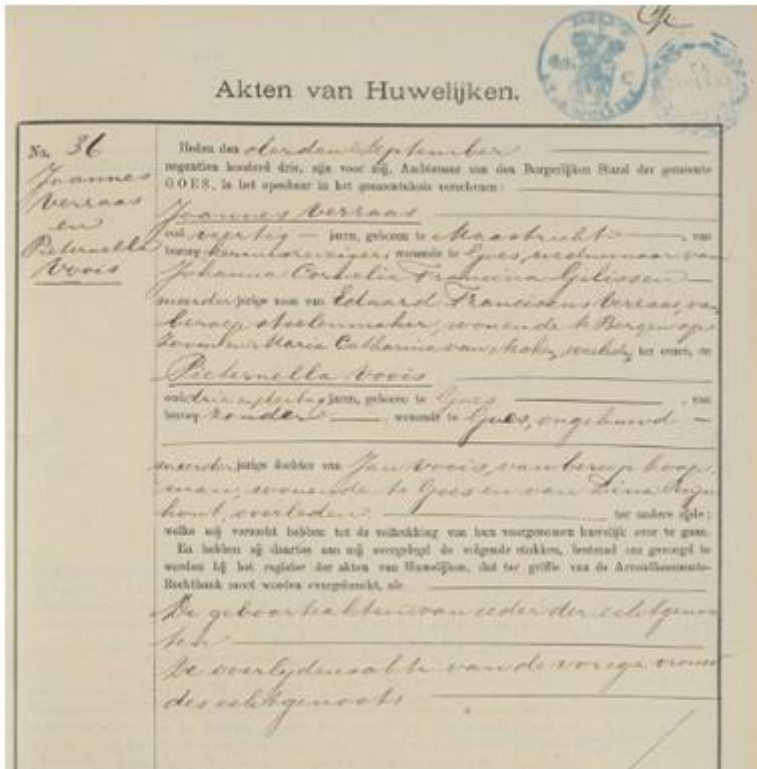 Akten van Huwelijken.
No. 36
Joannes
Verraas
en
Pieternella
Voois
Heden den derden September
negentien honderd drie, zijn voor mij, Ambtenaar van den Burgerlijken Stand der gemeente
GOES, in het openbaar in het gemeentehuis verschenen:
Joannes Verraas
oud veertig jaren, geboren te Maastricht, van
beroep, wonende te Goes, weduwnaar van
Johanna Cornelia Francina Gilissen
meerderjarige zoon van Eduard Franciscus Verraas, van
beroep stoelenmaker, wonende te Bergen op
Zoom en Maria Catharina van, ter eenre, en
Pieternella Voois
oud drie en dertig jaren, geboren te Goes, van
beroep zonder, wonende te Goes, ongehuwd
meerderjarige dochter van Jan Voois, van beroep koop
man, wonende te Goes en van Dina
hout, overleden ter andere zijde;
welke mij verzocht hebben tot de voltrekking van hun voorgenomen huwelijk over te gaan.
En hebben zij daartoe aan mij overgelegd de volgende stukken, bestemd om gevoegd te
worden bij het register der akten van Huwelijken, dat ter griffie van de Arrondissements-
Rechtbank moet worden overgebracht, als
De geboorteakten van ieder der echtgenoo
ten
De overlijdensakte van de vorige vrouw
des echtgenoots